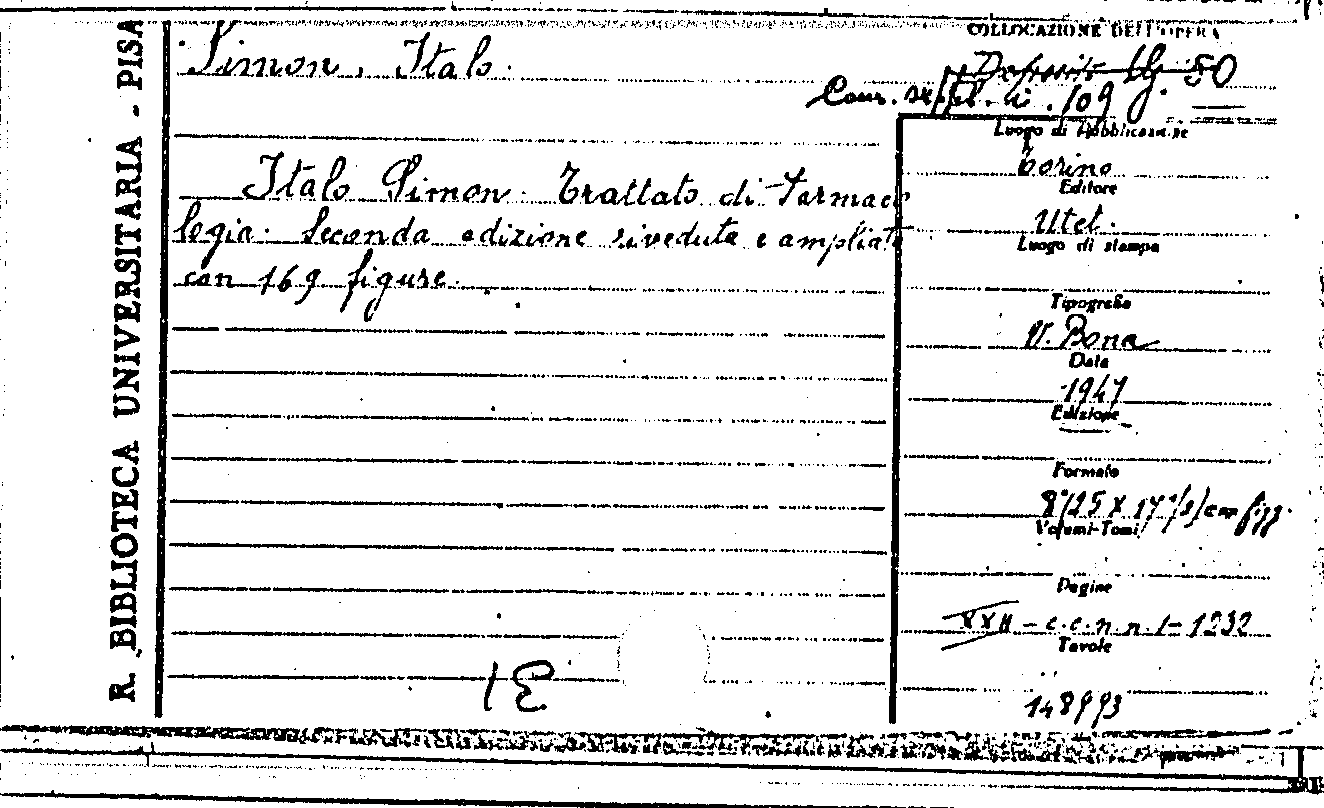 R. BIBLIOTECA UNIVERSITARIA - PISA
Simon, Italo.
COLLOCAZIONE DELL'OPERA
Deposito Ug. 80
109
Italo Simon. Trattato di Farmaco
logia. Seconda edizione riveduta e ampliata
con 169 figure.
Luogo di Pubblicazione
Torino
Editore
Utet.
Luogo di stampa
Tipografia
V. Bona
Data
1947
Edizione
Formato
8°(25 X 17 1/2) con figg.
Volumi-Tomi
Pagine
XXII - c.c.n.n. 1 - 1232
Tavole
148993